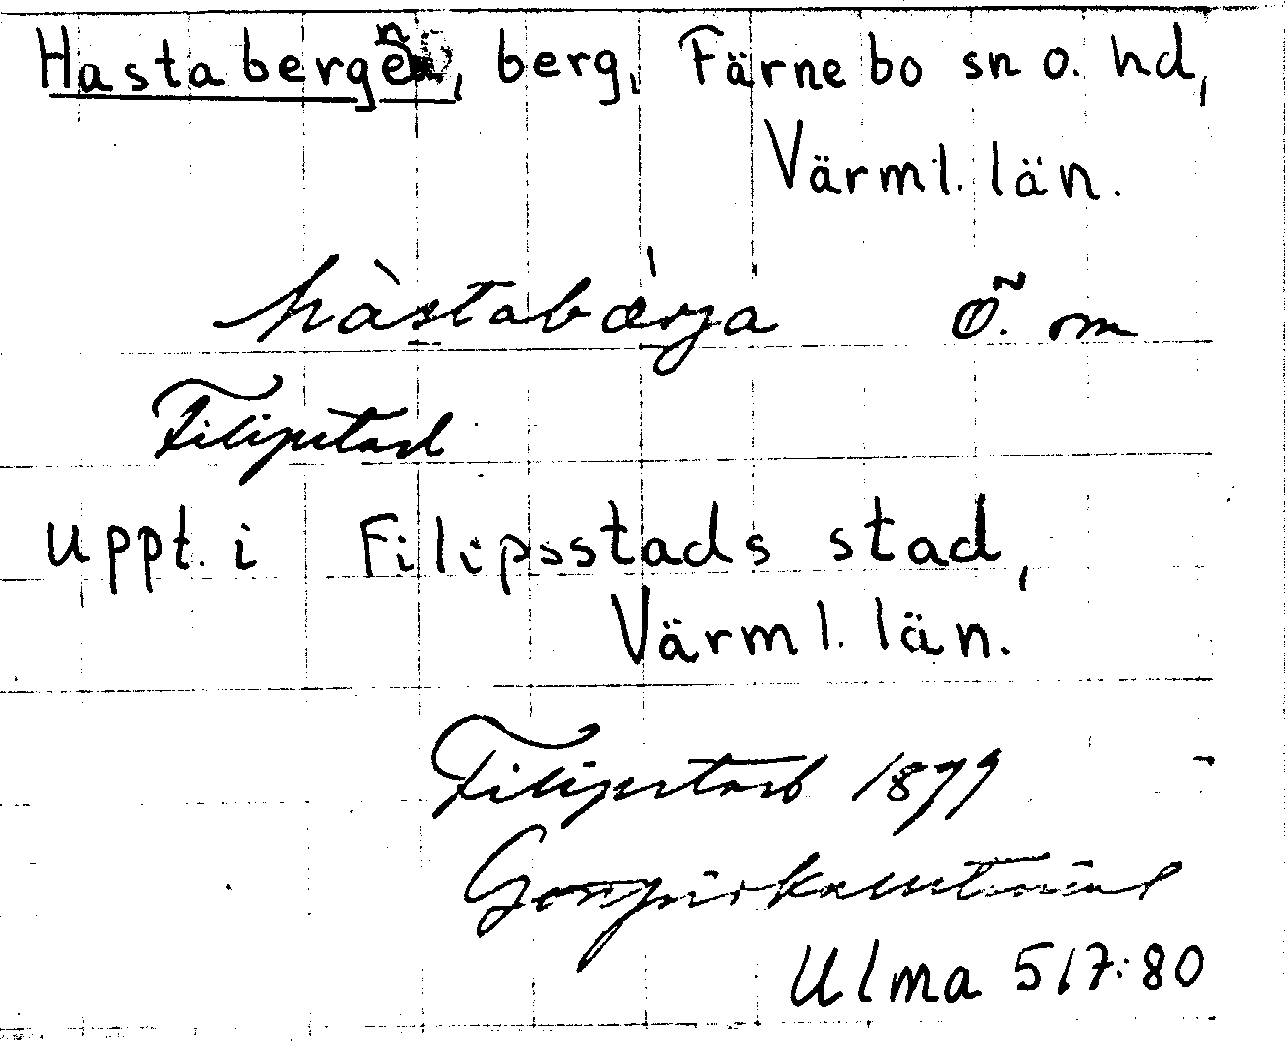 Hastabergen, berg, Färnebo sn o. hd,
Värml. län.
hàstabǽrja Ö. om
Filipstad
uppt. i Filipsstads stad,
Värml. län.
Filipstad 1879
Ulma 517:80